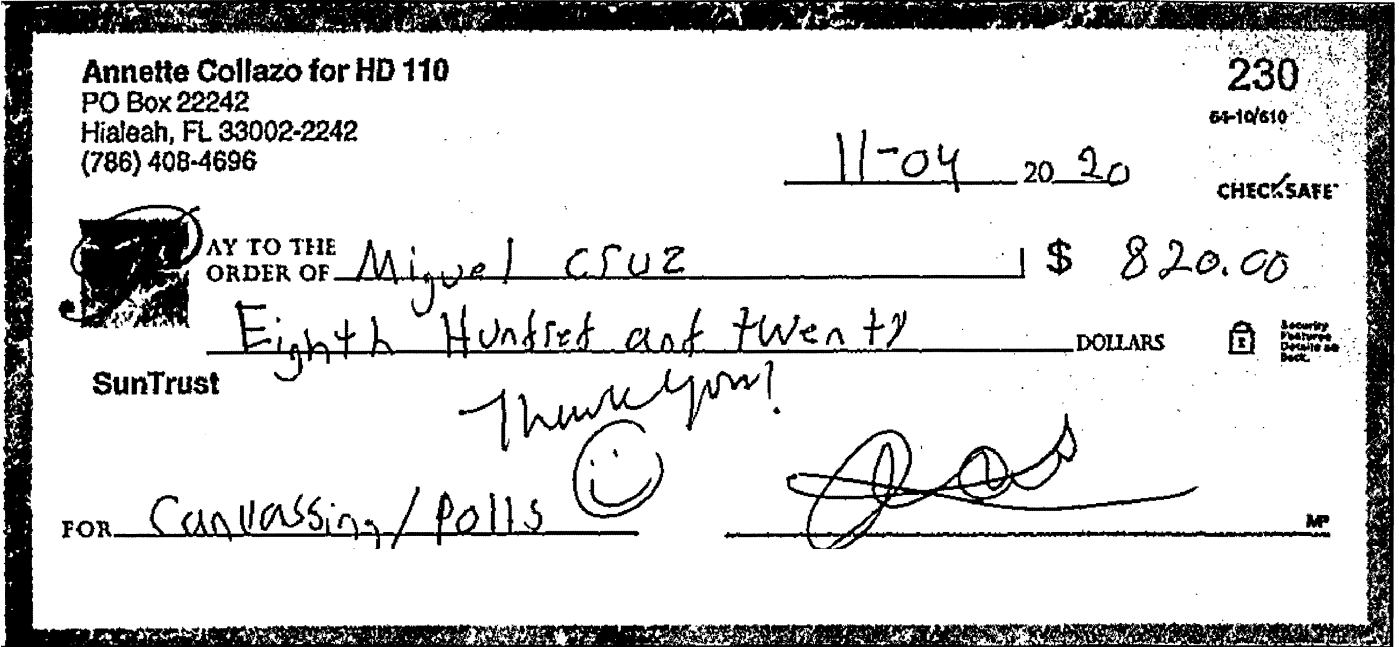 Annette Collazo for HD 110
PO Box 22242
Hialeah, FL 33002-2242
(786) 408-4696
230
64-10/610
11-04 20 20
CHECKSAFE
AY TO THE
ORDER OF Miguel Cruz $ 820.00
Eighth Hundred and twenty DOLLARS
Security
Features
Details on
Back.
SunTrust
Thank you!
FOR Canvassing/Polls
MP